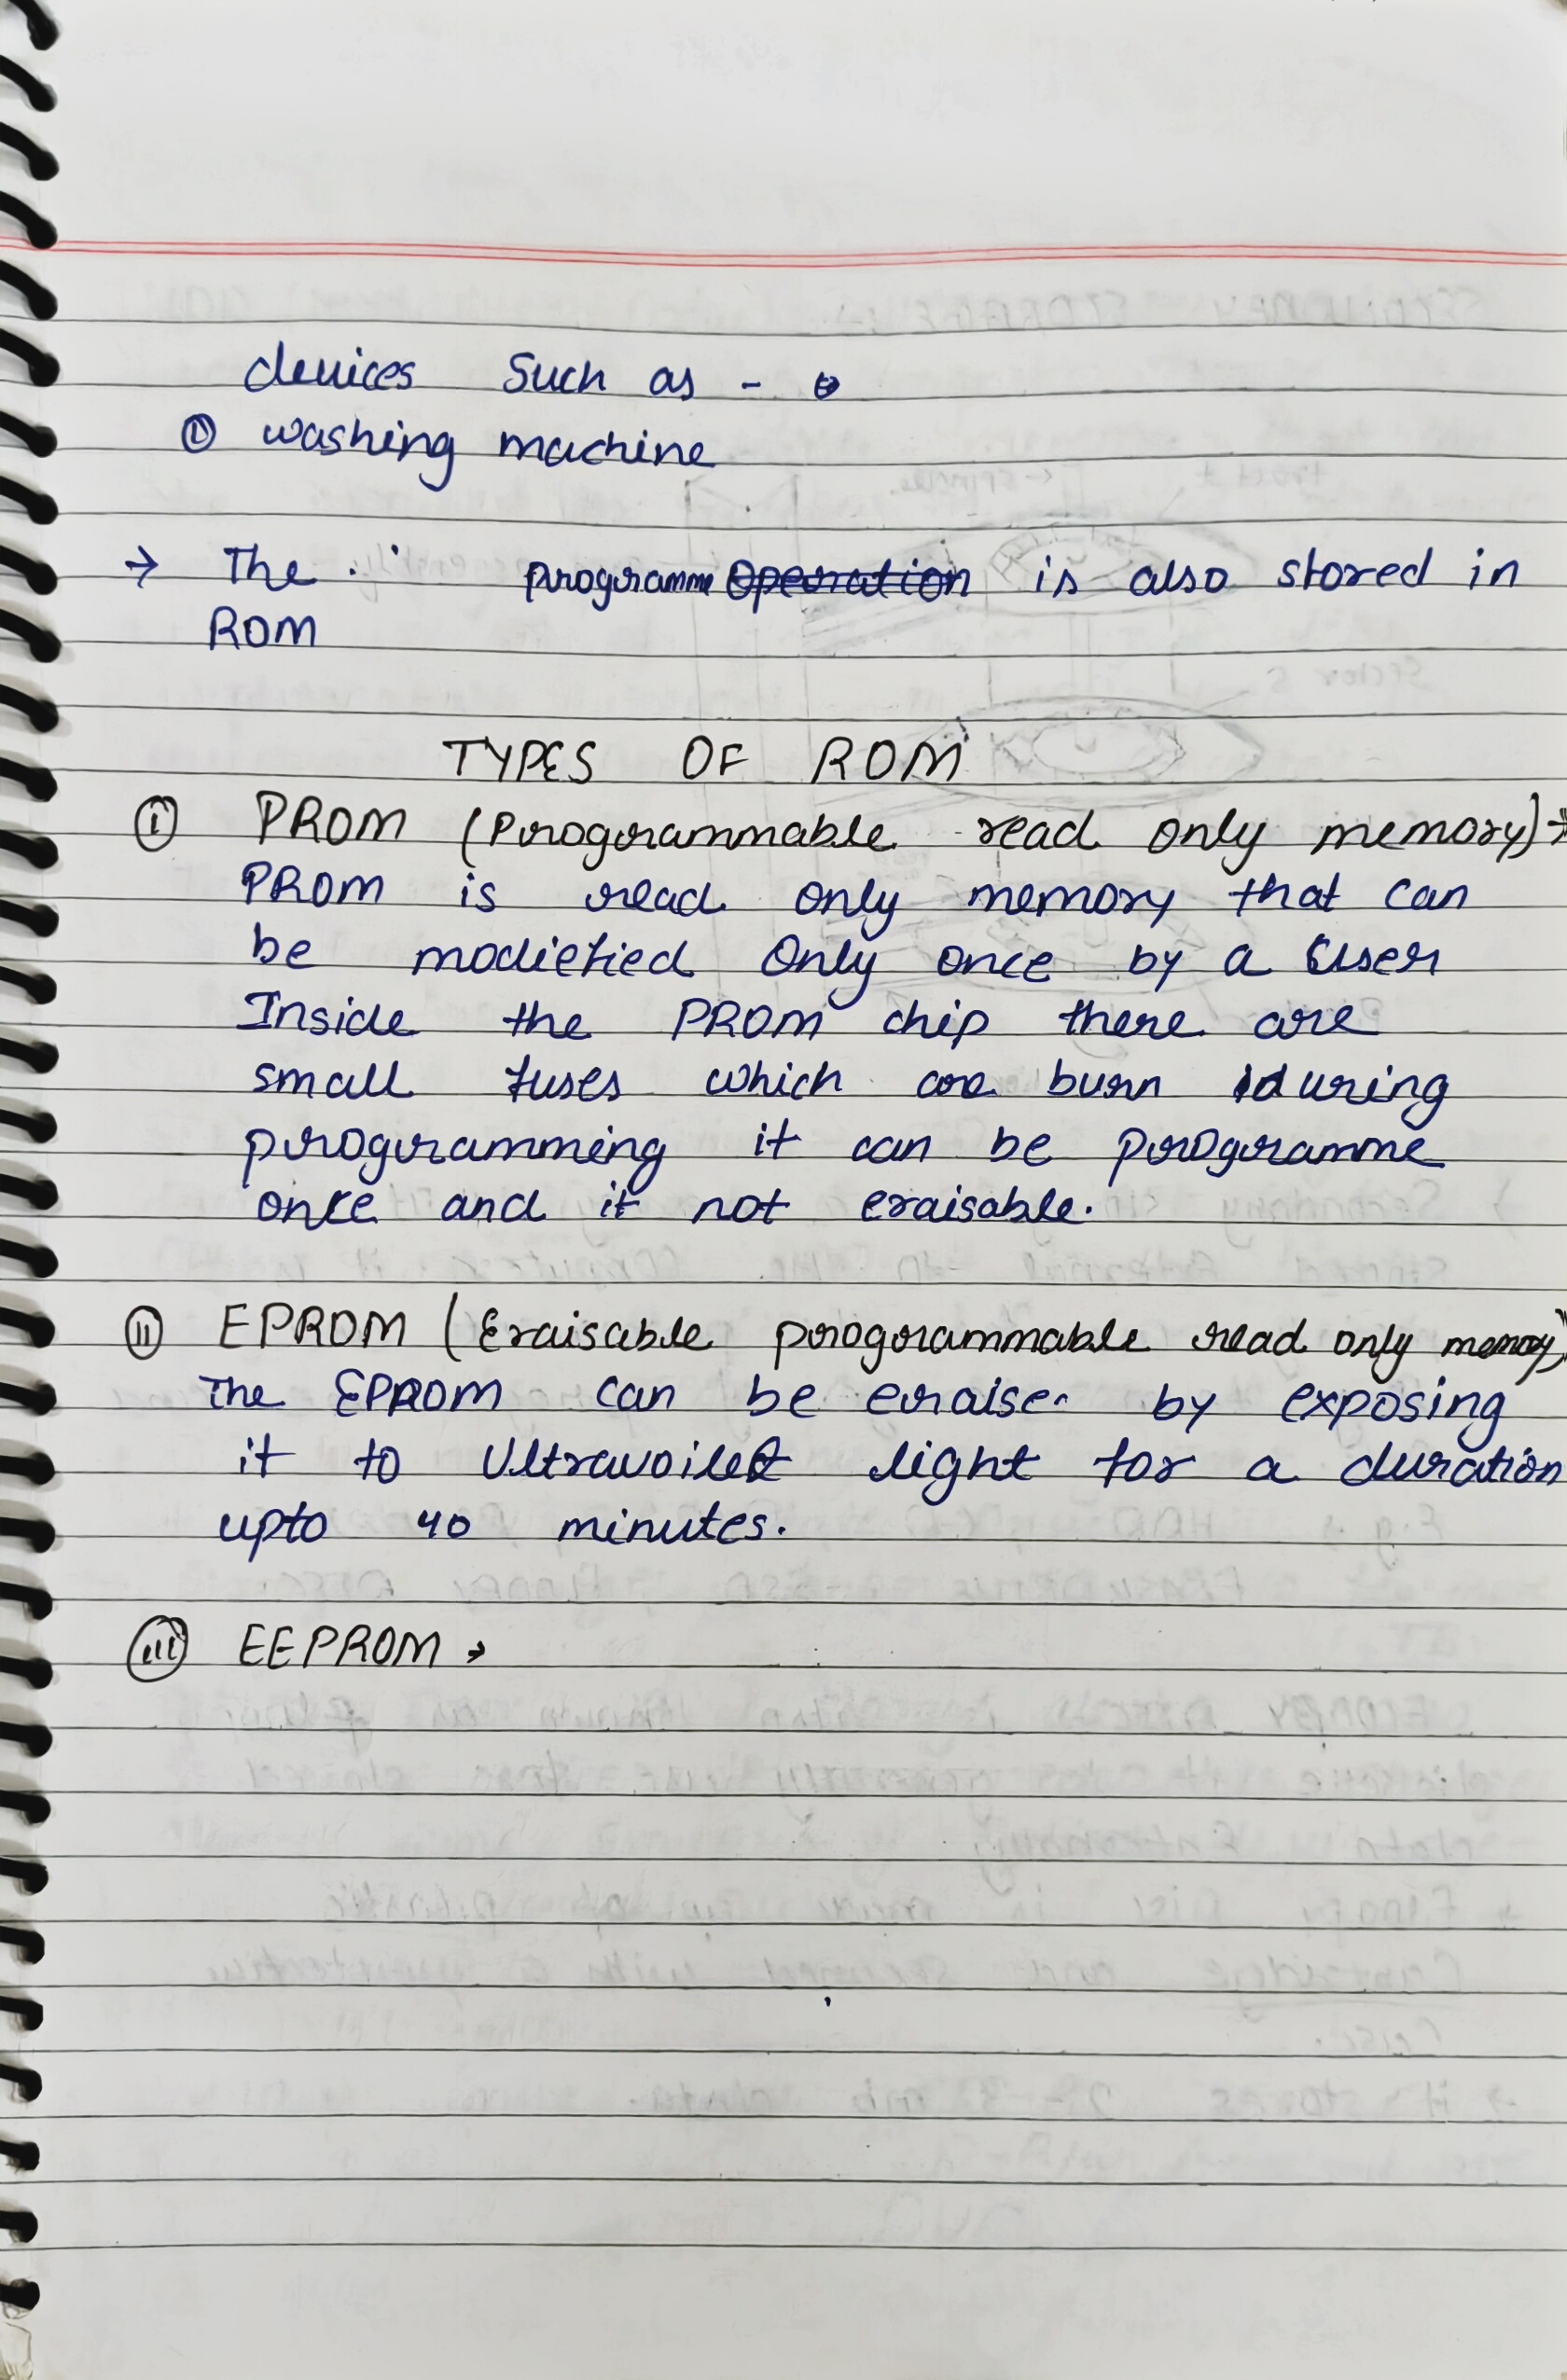 devices Such as -
① washing machine
→ The programme Operation is also stored in
ROM
TYPES OF ROM
ⓘ PROM (Programmable read only memory) →
PROM is read only memory that can
be modietied Only once by a User
Inside the PROM chip there are
small fuses which are burn during
programming it can be programme
once and it not eraisable.
ⓘⓘ EPROM (Eraisable programmable read only memory)
The EPROM can be eraise by exposing
it to Ultravoilet light for a duration
upto 40 minutes.
ⓘⓘⓘ EEPROM →